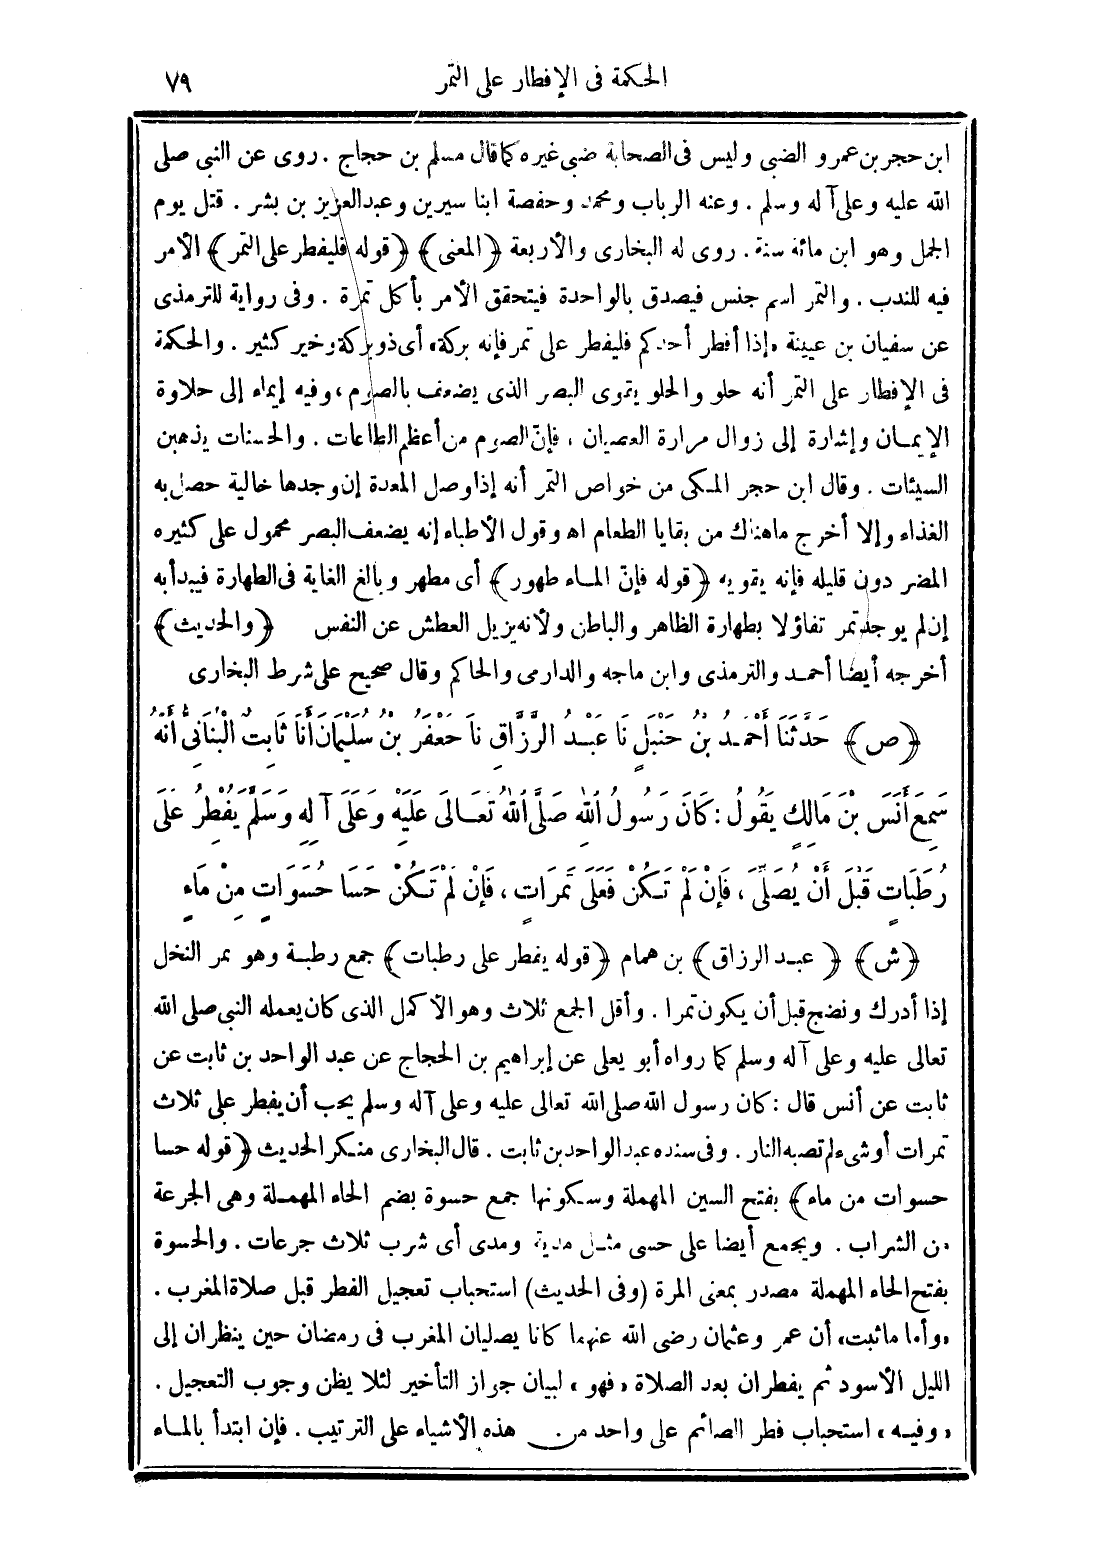 الحكمة فى الإفطار على التمر ٧٩
ابن حجر بن عمرو الضبى وليس فى الصحابة ضبى غيره كما قال مسلم بن حجاج . روى عن النبى صلى
الله عليه وعلى آله وسلم . وعنه الرباب ومحمد وحفصة ابنا سيرين وعبد العزيز بن بشر . قتل يوم
الجمل وهو ابن مائة سنة . روى له البخارى والأربعة ﴿المعنى﴾ ﴿قوله فليفطر على التمر﴾ الأمر
فيه للندب . والتمر اسم جنس فيصدق بالواحدة فيتحقق الأمر بأكل تمرة . وفى رواية للترمذى
عن سفيان بن عيينة «إذا أفطر أحدكم فليفطر على تمر فإنه بركة» أى ذو بركة وخير كثير . والحكمة
فى الإفطار على التمر أنه حلو والحلو يقوى البصر الذى يضعف بالصوم ، وفيه إيماء إلى حلاوة
الإيمـان وإشارة إلى زوال مرارة العصيان ، فإنّ الصوم من أعظم الطاعات . والحسنات يذهبن
السيئات . وقال ابن حجر المـكى من خواص التمر أنه إذا وصل المعدة إن وجدها خالية حصل به
الغذاء وإلا أخرج ما هناك من بقايا الطعام اه وقول الأطباء إنه يضعف البصر محمول على كثيره
المضر دون قليله فإنه يقويه ﴿قوله فإنّ المـاء طهور﴾ أى مطهر وبالغ الغاية فى الطهارة فيبدأ به
إن لم يوجد تمر تفاؤلا بطهارة الظاهر والباطن ولأنه يزيل العطش عن النفس ﴿والحديث﴾
أخرجه أيضا أحمد والترمذى وابن ماجه والدارمى والحاكم وقال صحيح على شرط البخارى
﴿ص﴾ حَدَّثَنَا أَحْمَدُ بْنُ حَنْبَلٍ نَا عَبْدُ الرَّزَّاقِ نَا جَعْفَرُ بْنُ سُلَيْمَانَ أَنَا ثَابِتٌ الْبُنَانِىُّ أَنَّهُ
سَمِعَ أَنَسَ بْنَ مَالِكٍ يَقُولُ : كَانَ رَسُولُ اللهِ صَلَّى اللهُ تَعَالَى عَلَيْهِ وَعَلَى آلِهِ وَسَلَّمَ يُفْطِرُ عَلَى
رُطَبَاتٍ قَبْلَ أَنْ يُصَلِّىَ ، فَإِنْ لَمْ تَكُنْ فَعَلَى تَمَرَاتٍ ، فَإِنْ لَمْ تَكُنْ حَسَا حُسَوَاتٍ مِنْ مَاءٍ
﴿ش﴾ ﴿عبد الرزاق﴾ بن همام ﴿قوله يفطر على رطبات﴾ جمع رطبة وهو ثمر النخل
إذا أدرك ونضج قبل أن يكون تمرا . وأقل الجمع ثلاث وهو الأكمل الذى كان يعمله النبى صلى الله
تعالى عليه وعلى آله وسلم كما رواه أبو يعلى عن إبراهيم بن الحجاج عن عبد الواحد بن ثابت عن
ثابت عن أنس قال : كان رسول الله صلى الله تعالى عليه وعلى آله وسلم يحب أن يفطر على ثلاث
تمرات أو شىء لم تصبه النار . وفى سنده عبد الواحد بن ثابت . قال البخارى منكر الحديث ﴿قوله حسا
حسوات من ماء﴾ بفتح السين المهملة وسكونها جمع حسوة بضم الحاء المهمـلة وهى الجرعة
من الشراب . ويجمع أيضا على حسى مثـل مدية ومدى أى شرب ثلاث جرعات . والحسوة
بفتح الحاء المهملة مصدر بمعنى المرة (وفى الحديث) استحباب تعجيل الفطر قبل صلاة المغرب .
«وأما ما ثبت» أن عمر وعثمان رضى الله عنهما كانا يصليان المغرب فى رمضان حين ينظران إلى
الليل الأسود ثم يفطران بعد الصلاة «فهو» لبيان جواز التأخير لئلا يظن وجوب التعجيل .
«وفيـه» استحباب فطر الصائم على واحد من هذه الأشياء على الترتيب . فإن ابتدأ بالمـاء